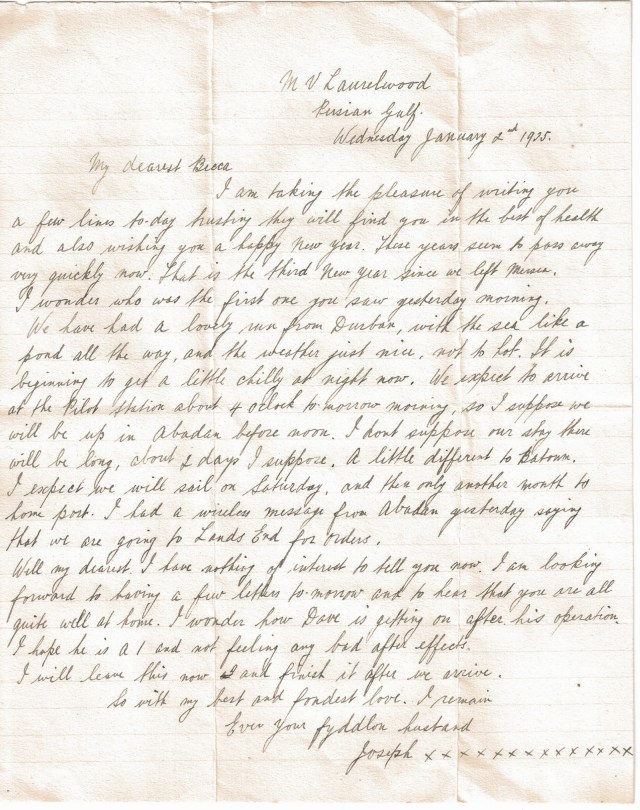 M V Laurelwood
Persian Gulf.
Wednesday January 2nd 1935.
My dearest Becca
I am taking the pleasure of writing you
a few lines to-day trusting they will find you in the best of health
and also wishing you a happy New Year. These years seem to pass away
very quickly now. That is the third New Year since we left
I wonder who was the first one you saw yesterday morning.
We have had a lovely run from Durban, with the sea like a
pond all the way, and the weather just nice, not to hot. It is
beginning to get a little chilly at night now. We expect to arrive
at the Pilot Station about 4 oclock to-morrow morning, so I suppose we
will be up in Abadan before noon. I dont suppose our stay there
will be long, about 2 days I suppose. A little different to Batoum.
I expect we will sail on Saturday, and then only another month to
home port. I had a wireless message from Abadan yesterday saying
that we are going to Lands End for orders.
Well my dearest I have nothing of interest to tell you now. I am looking
forward to having a few letters to-morrow and to hear that you are all
quite well at home. I wonder how Dave is getting on after his operation.
I hope he is A1 and not feeling any bad after effects.
I will leave this now and finish it after we arrive.
So with my best and fondest love. I remain
Ever your fyddlon husband
Joseph x x x x x x x x x x x x x